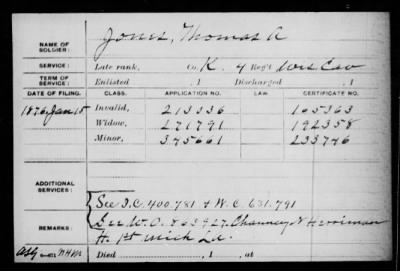 Jones, Thomas A
NAME OF SOLDIER:
SERVICE: Late rank, Co. K, 4 Reg't Wis Cav
TERM OF SERVICE: Enlisted , 1 Discharged , 1
DATE OF FILING. CLASS. APPLICATION NO. LAW. CERTIFICATE NO.
1876 Jan 15 Invalid, 213336 165363
Widow, 271791 192358
Minor, 345661 233746
ADDITIONAL SERVICES: See I.C. 400.781 & W.C. 631.791
REMARKS: See W.O. 863927. Chauncey N Herriman
H. 1st Mich L.A.
Died , 1 , at